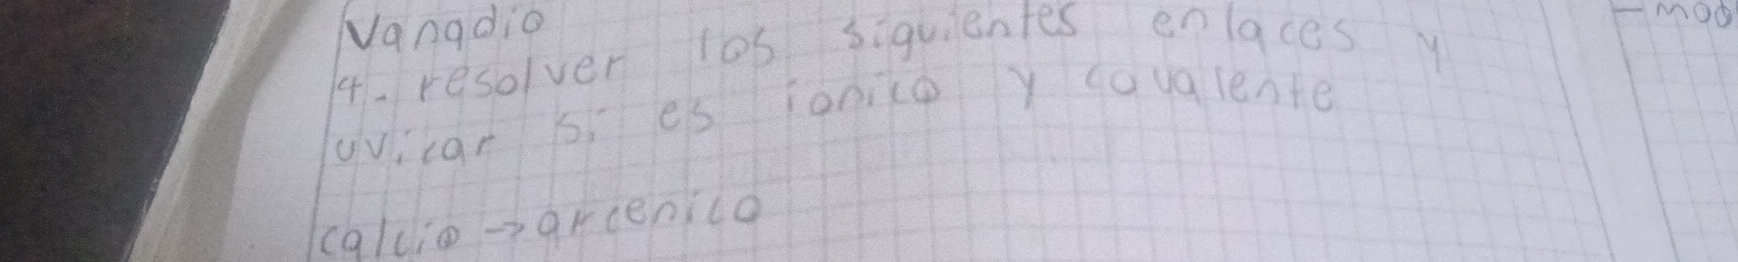 Vanadio
4. resolver los siguientes enlaces y
uvicar si es ionico y covalente
calcio → arcenico
- mod